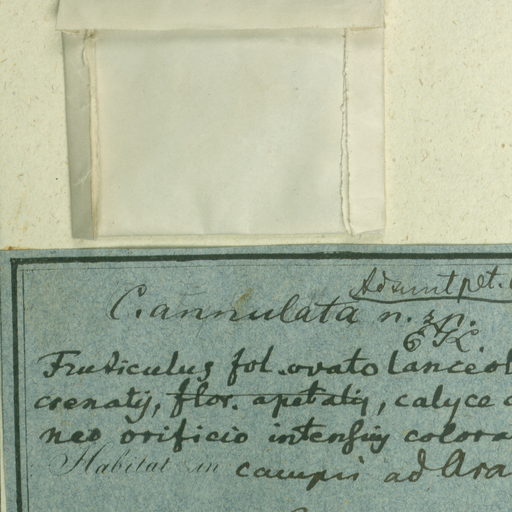 Adsunt pet.
C. annulata n. sp.
E K.
Fruticulus fol. ovato lanceol
crenatis, flor. apetalis, calyce
neo orificio intensius colora
Habitat in campis ad Ara